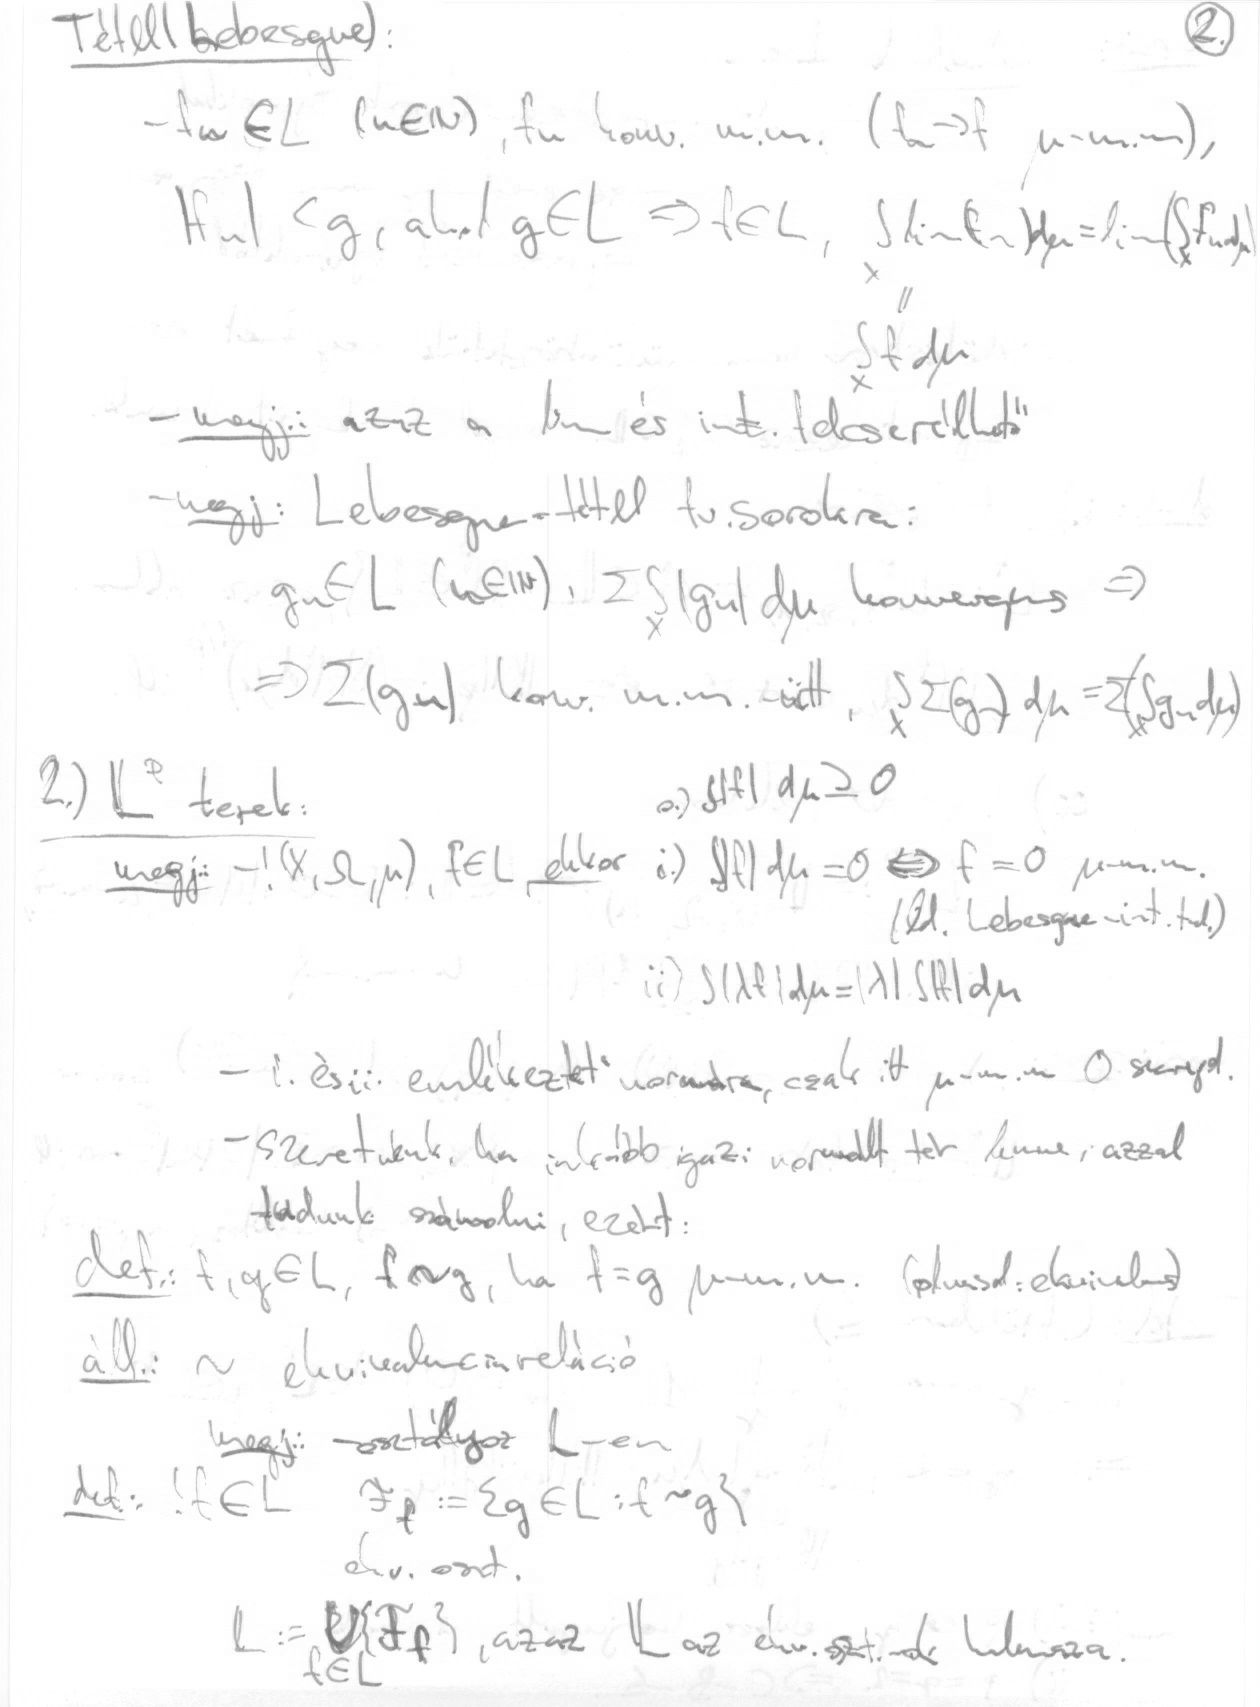 Tétel (Lebesgue): 2.
- fn ∈ L (n∈ℕ), fn konv. m.m. (fn→f μ-m.m),
|fn| < g, ahol g∈L ⇒ f∈L, ∫_X lim(fn)dμ = lim(∫_X fn dμ)
=
∫_X f dμ
- megj.: azaz a lim és int. felcserélhető
- megj.: Lebesgue-tétel fv.sorokra:
gn∈L (n∈ℕ), Σ∫_X|gn| dμ konvergens ⇒
⇒ Σ(gn) konv. m.m.-itt, ∫_X Σ(gn) dμ = Σ(∫_X gn dμ)
2.) 𝕃^p terek:
o.) ∫|f| dμ ≥ 0
megj.: -!(X,Ω,μ), f∈L, ekkor i.) ∫|f| dμ = 0 ⇔ f = 0 μ-m.m.
(ld. Lebesgue-int. tul.)
ii) ∫|λf| dμ = |λ| ∫|f| dμ
- i. és ii. emlékeztet normára, csak itt μ-m.m 0
- szeretnénk, ha inkább igazi normált tér lenne, azzal
tudunk számolni, ezért:
def.: f,g∈L, f~g, ha f=g μ-m.m. (olvasd: ekvivalens)
áll.: ~ ekvivalenciareláció
megj.: -osztályoz L-en
def.: !f∈L ℱ_f := {g∈L : f~g}
ekv. oszt.
𝕃 := ⋃_{f∈L}{ℱ_f}, azaz 𝕃 az ekv.oszt.-ok halmaza.